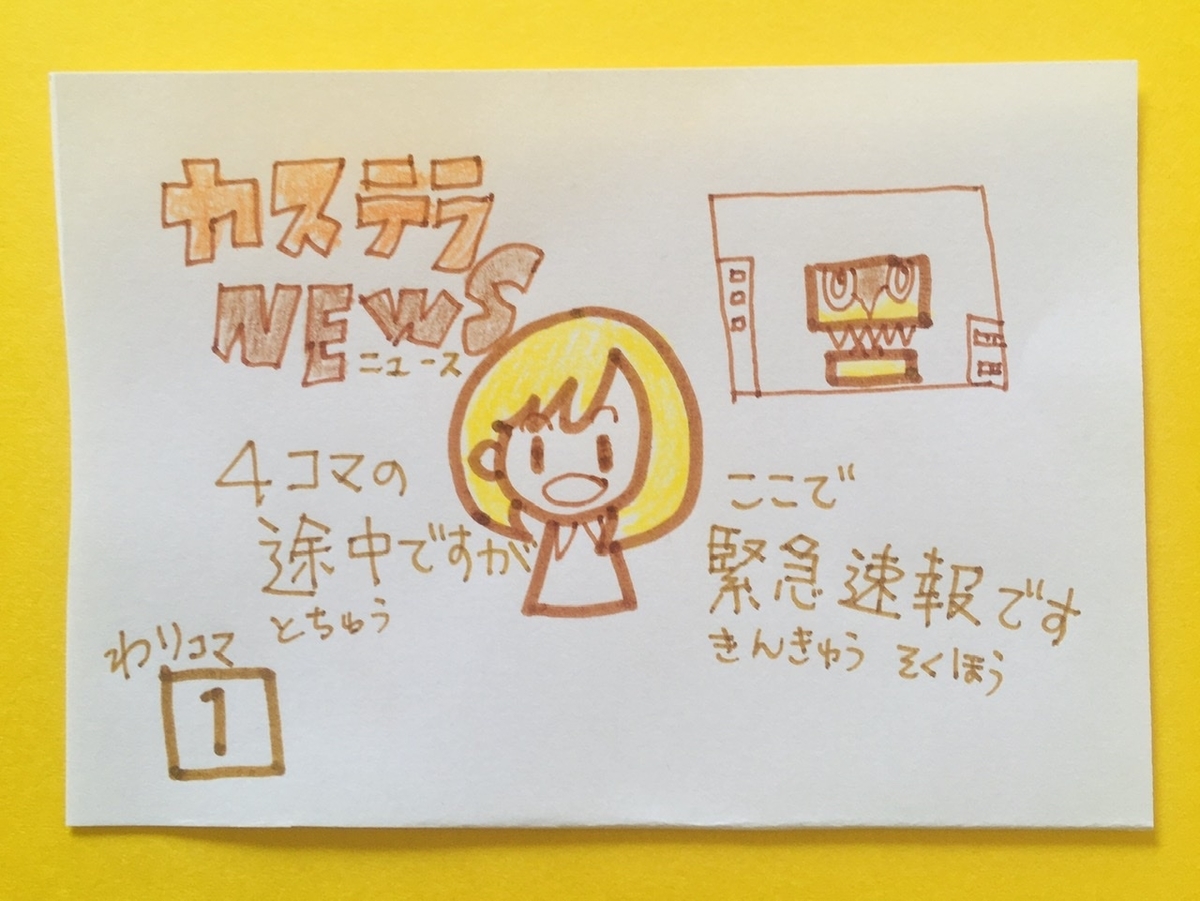 カステラ
NEWS
ニュース
4コマの
途中ですが
とちゅう
ここで
緊急速報です
きんきゅう そくほう
わりコマ
1